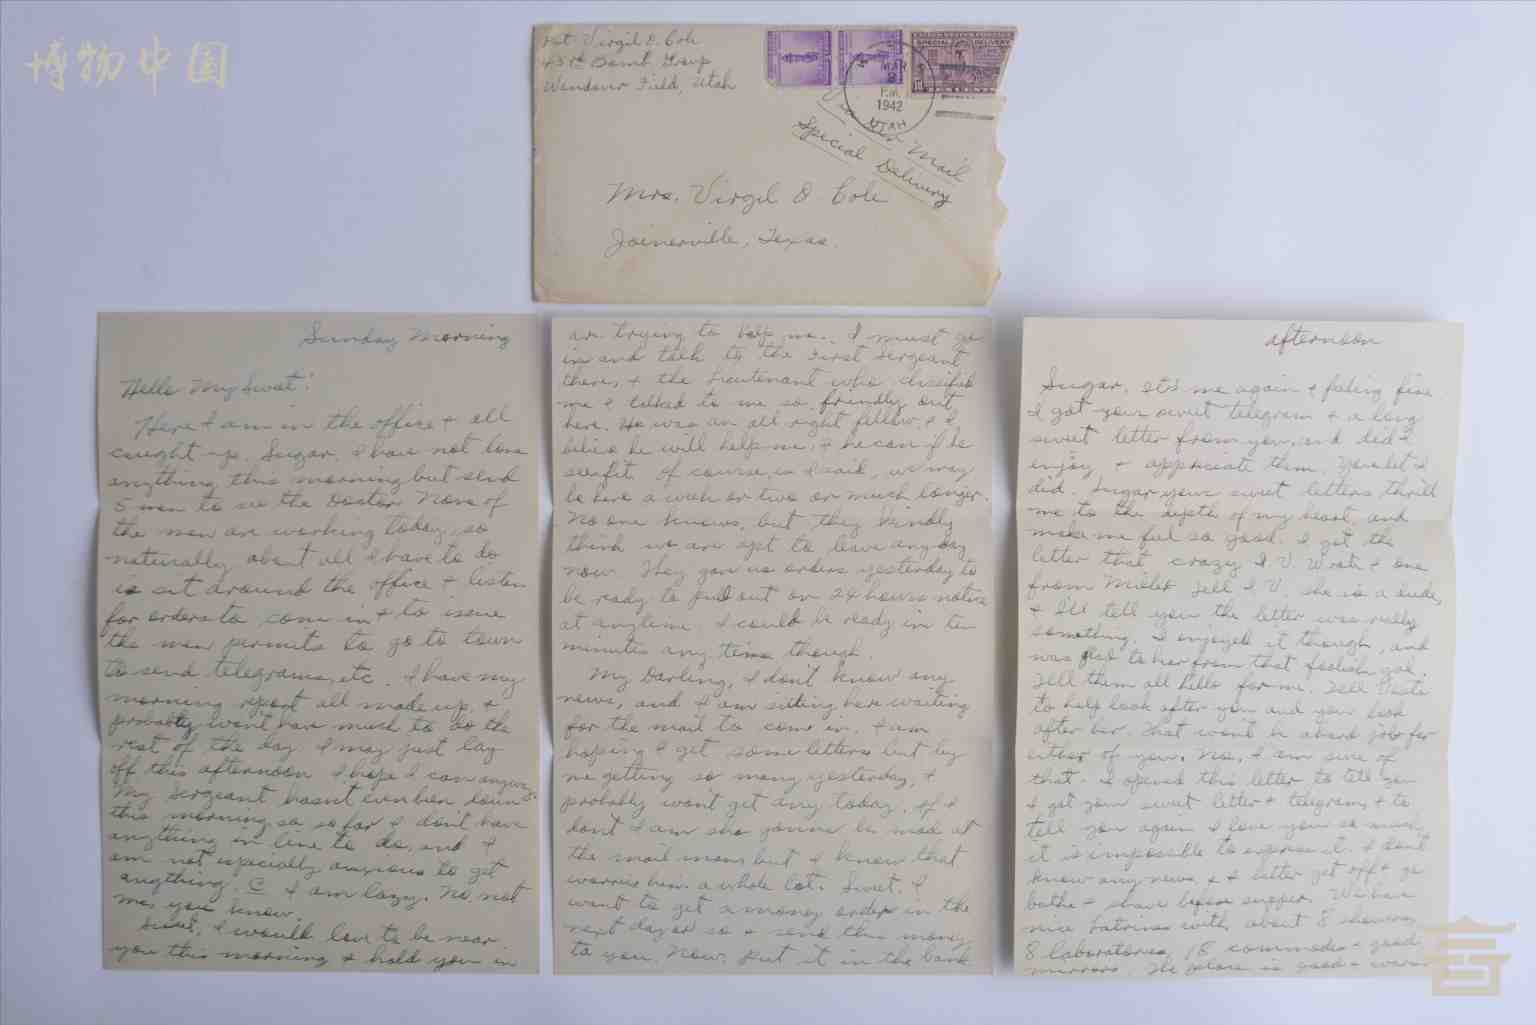 博物中国
Pvt Virgil O. Cole
43rd Bomb. Group
Wendover Field, Utah
SPECIAL DELIVERY
MAR
P.M.
1942
UTAH
Via Air Mail
Special Delivery
Mrs. Virgil O Cole
Joinerville, Texas.
Sunday Morning
Hello My Sweet:
Here I am in the office & all
caught up. Sugar, I have not done
anything this morning but send
5 men to see the Doctor. None of
the men are working today, so
naturally about all I have to do
is sit around the office & listen
for orders to come in & to issue
the men permits to go to town
to send telegrams, etc. I have my
morning report all made up, &
probably won't have much to do the
rest of the day. I may just lay
off this afternoon. I hope I can anyway.
My Sergeant hasn't even been down
this morning, so so far I don't have
anything in line to do, and I
am not especially anxious to get
anything. I am lazy. No, not
me, you know.
Sweet, I would love to be near
you this morning & hold you in
are trying to help me. I must go
in and talk to the First Sergeant
there, & the Lieutenant who
me & talked to me so friendly out
here. He was an all right fellow, & I
believe he will help me, & he can if he
sees fit. Of course, as I said, we may
be here a week or two or much longer.
No one knows, but they kindly
think we are apt to leave any day
now. They gave us orders yesterday to
be ready to pull out on 24 hours notice
at anytime. I could be ready in ten
minutes any time though.
My Darling, I don't know any
news, and I am sitting here waiting
for the mail to come in. I am
hoping I get some letters but by
me getting so many yesterday, I
probably won't get any today. If I
don't I am sho gonna be mad at
the mail man, but I know that
worries him a whole lot. Sweet, I
want to get a money order in the
next day or so & send this money
to you. Now, put it in the bank
afternoon
Sugar, It's me again & feeling fine.
I got your sweet telegram & a long
sweet letter from you, and did I
enjoy & appreciate them. You bet I
did. Sugar your sweet letters thrill
me to the depth of my heart, and
make me feel so good. I got the
letter that crazy I V wrote & one
from Tell I.V. she is a dude,
& I'll tell you the letter was really
something. I enjoyed it though, and
was glad to hear from that foolish gal.
Tell them all hello for me. Tell
to help look after you and you look
after her. That won't be a hard job for
either of you. No, I am sure of
that. I opened this letter to tell you
I got your sweet letter & telegram, & to
tell you again I love you so much,
it is impossible to express it. I don't
know any news, & I better get off & go
bathe & shave before supper. We have
nice Latrines with about 8 showers,
8 laboratories, 18 commodes & good
mirrors. The place is good & warm